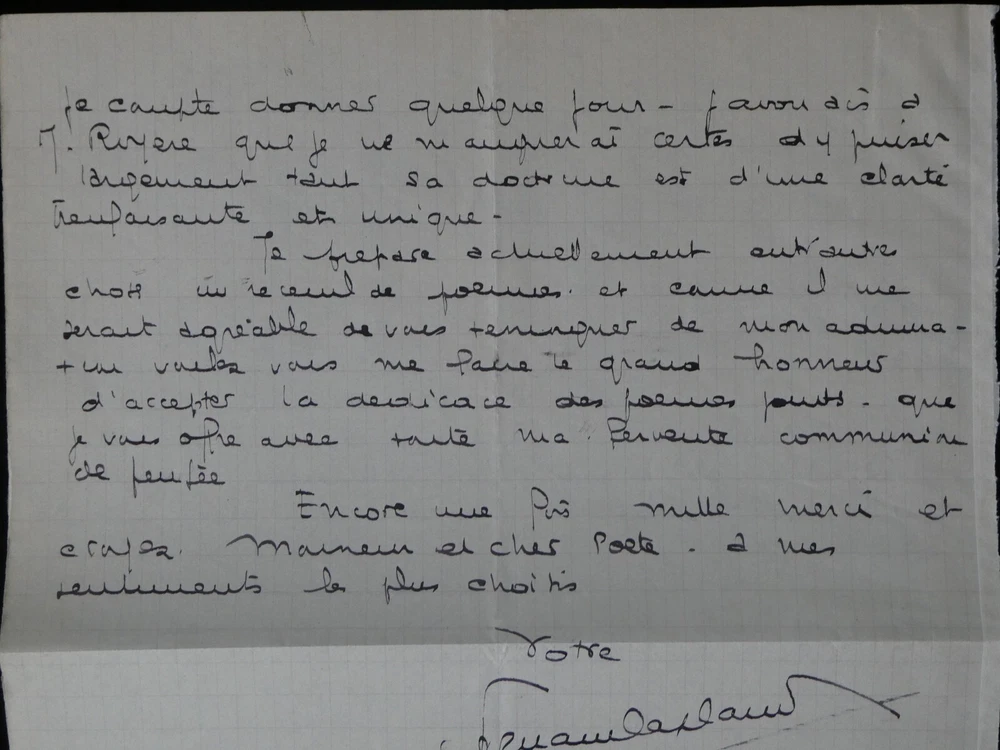 je compte donner quelque jour - j'avouais à
J. Royère que je ne manquerai certes d'y puiser
largement tant sa doctrine est d'une clarté
bienfaisante et unique -
Je prépare actuellement entr'autres
choses un recueil de poèmes. et comme il me
serait agréable de vous témoigner de mon admira-
tion voulez vous me faire le grand honneur
d'accepter la dédicace des poèmes joints - que
je vous offre avec toute ma fervente communion
de pensée
Encore une fois mille merci et
croyez. Monsieur et cher Poète - à mes
sentiments les plus choisis
Votre